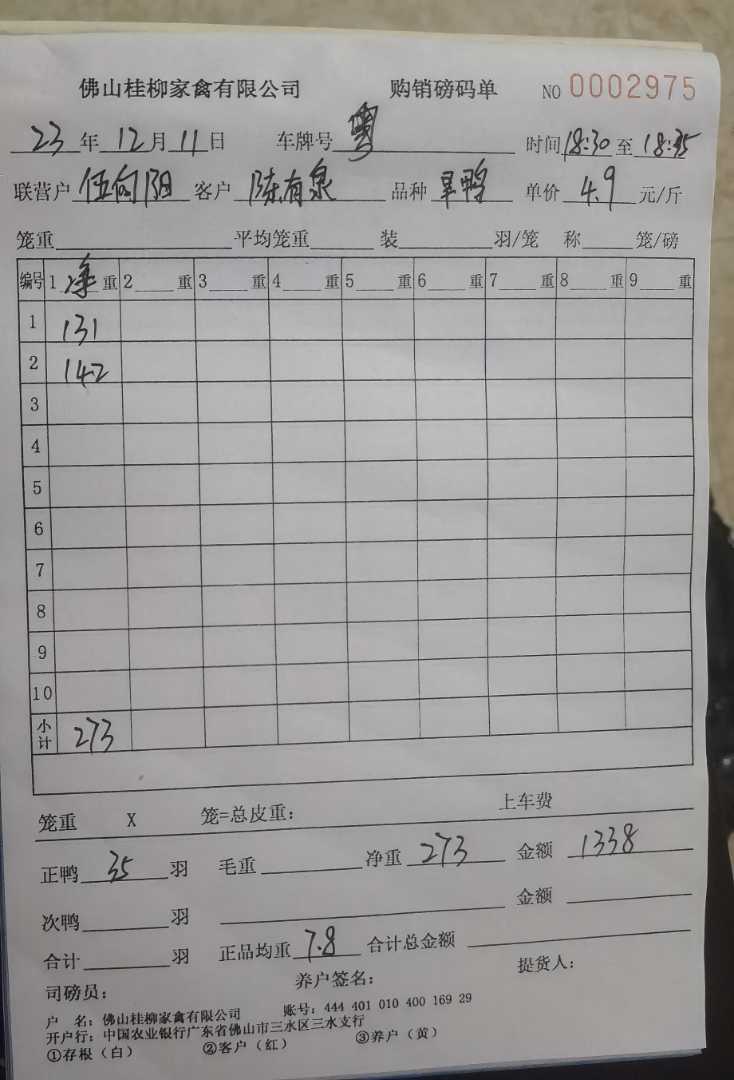 佛山桂柳家禽有限公司 购销磅码单 NO 0002975
23年12月11日 车牌号粤 时间18:30至18:35
联营户伍向阳 客户陈有泉 品种旱鸭 单价4.9元/斤
笼重 平均笼重 装 羽/笼 称 笼/磅
编号 1净重 2 重 3 重 4 重 5 重 6 重 7 重 8 重 9 重
1 131
2 142
3
4
5
6
7
8
9
10
小计 273
笼重 X 笼=总皮重: 上车费
正鸭35羽 毛重 净重273 金额1338
次鸭 羽 金额
合计 羽 正品均重7.8 合计总金额
司磅员: 养户签名: 提货人:
户 名: 佛山桂柳家禽有限公司 账号: 444 401 010 400 169 29
开户行: 中国农业银行广东省佛山市三水区三水支行
①存根(白) ②客户(红) ③养户(黄)